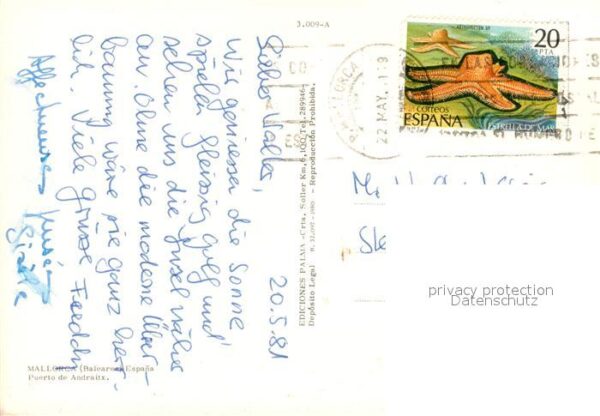 3.009-A
20 PTA
correos
ESPAÑA
ESTRELLA DE MAR
22 MAY.
20.5.81
Lieber Walter,
Wir geniessen die Sonne
spielen fleissig golf und
sehen uns die Insel näher
an. Ohne die moderne Über-
bauung wäre sie ganz herr-
lich. Viele Grüsse
EDICIONES PALMA -Crta. Soller Km. 6,100 Tel. 289946-
Depósito Legal B. 31.097-1980 - Reproducción Prohibida.
privacy protection
Datenschutz
MALLORCA (Baleares) España
Puerto de Andraitx.